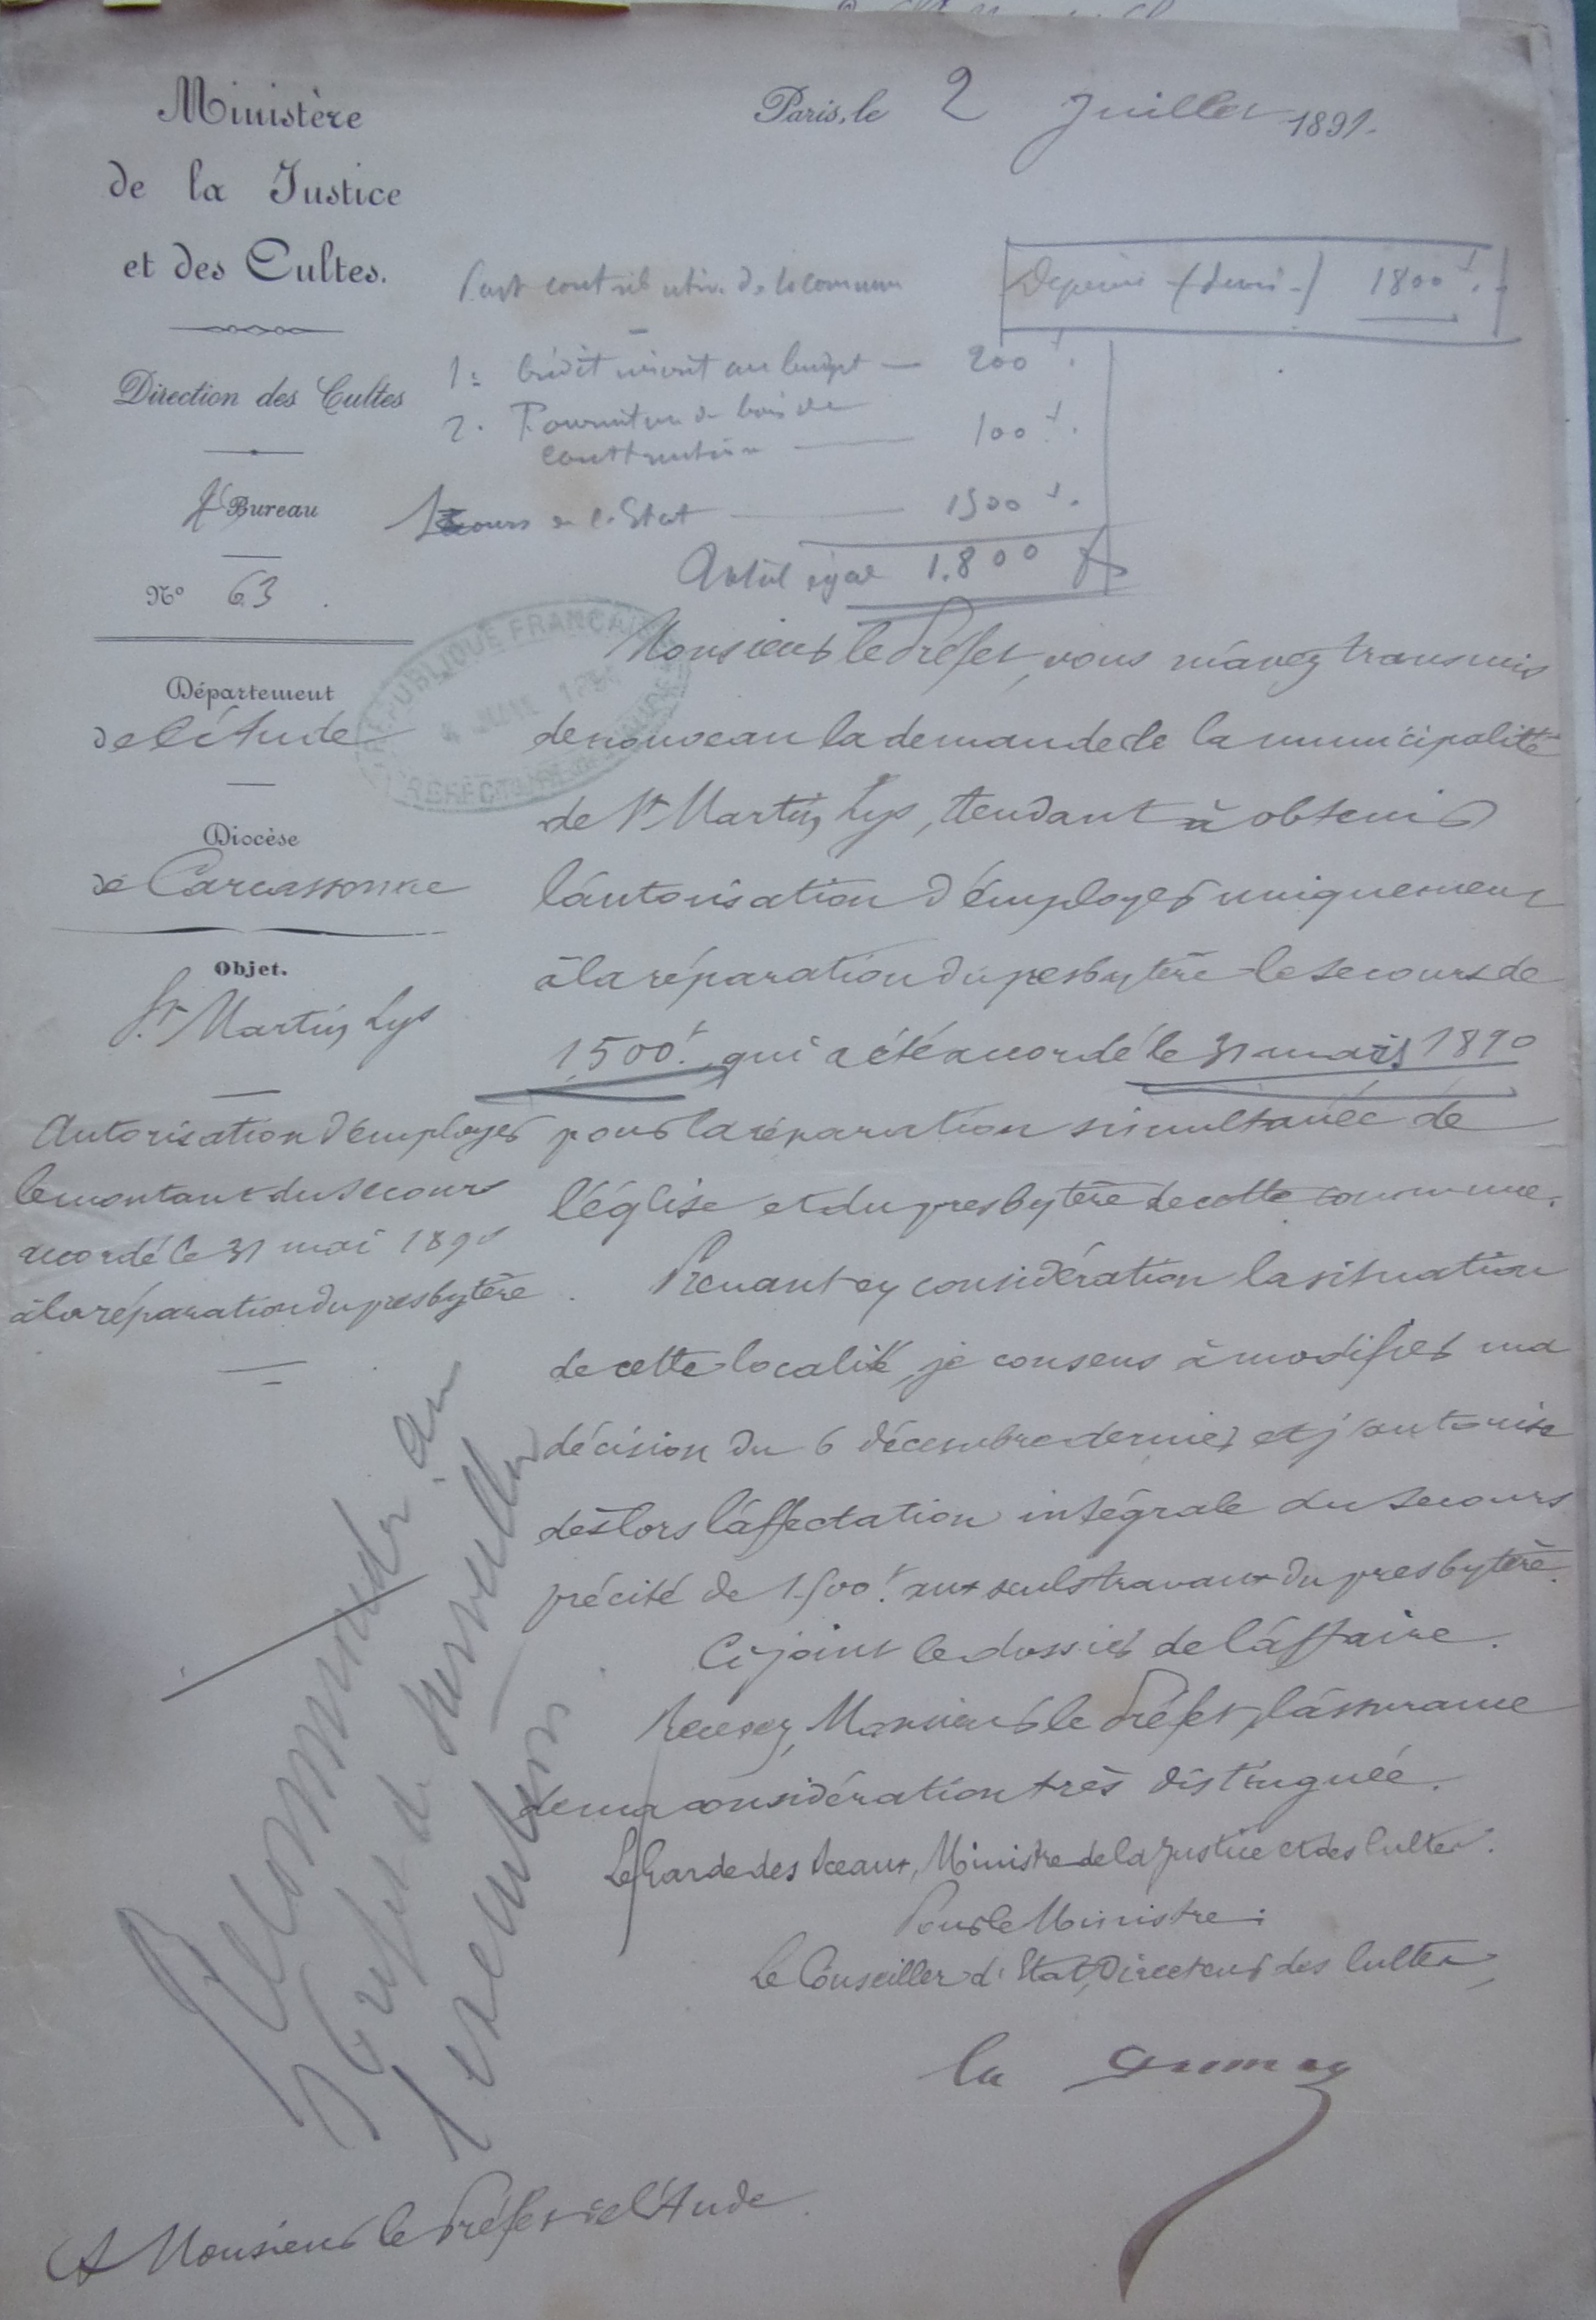 Ministère
de la Justice
et des Cultes.
Direction des Cultes
Bureau
N° 63
Département
de l'Aude
Diocèse
de Carcassonne
Objet.
St. Martin Lys
Autorisation d'employer
le montant du secours
accordé le 31 mai 1890
à la réparation du presbytère
Paris, le 2 Juillet 1891.
Part contributive de la commune
Dépense (devis) 1800 f.
1° Crédit inscrit au budget — 200 f.
2° Fourniture de bois de
construction — 100 f.
Secours de l'Etat — 1500 f.
Total égal 1.800 f
RÉPUBLIQUE FRANÇAISE
PRÉFECTURE DE L'AUDE
Monsieur le Préfet, vous m'avez transmis
de nouveau la demande de la municipalité
de St Martin Lys, tendant à obtenir
l'autorisation d'employer uniquement
à la réparation du presbytère le secours de
1,500f. qui a été accordé le 31 mars 1890
pour la réparation simultanée de
l'église et du presbytère de cette commune.
Prenant en considération la situation
de cette localité, je consens à modifier ma
décision du 6 décembre dernier et j'autorise
dès lors l'affectation intégrale du secours
précité de 1500f. aux seuls travaux du presbytère.
Ci joint le dossier de l'affaire.
Recevez, Monsieur le Préfet, l'assurance
de ma considération très distinguée.
Le Garde des Sceaux, Ministre de la Justice et des Cultes.
Pour le Ministre:
Le Conseiller d'Etat, Directeur des Cultes,
Recommander au
Préfet de surveiller
l'exécution
A Monsieur le Préfet de l'Aude